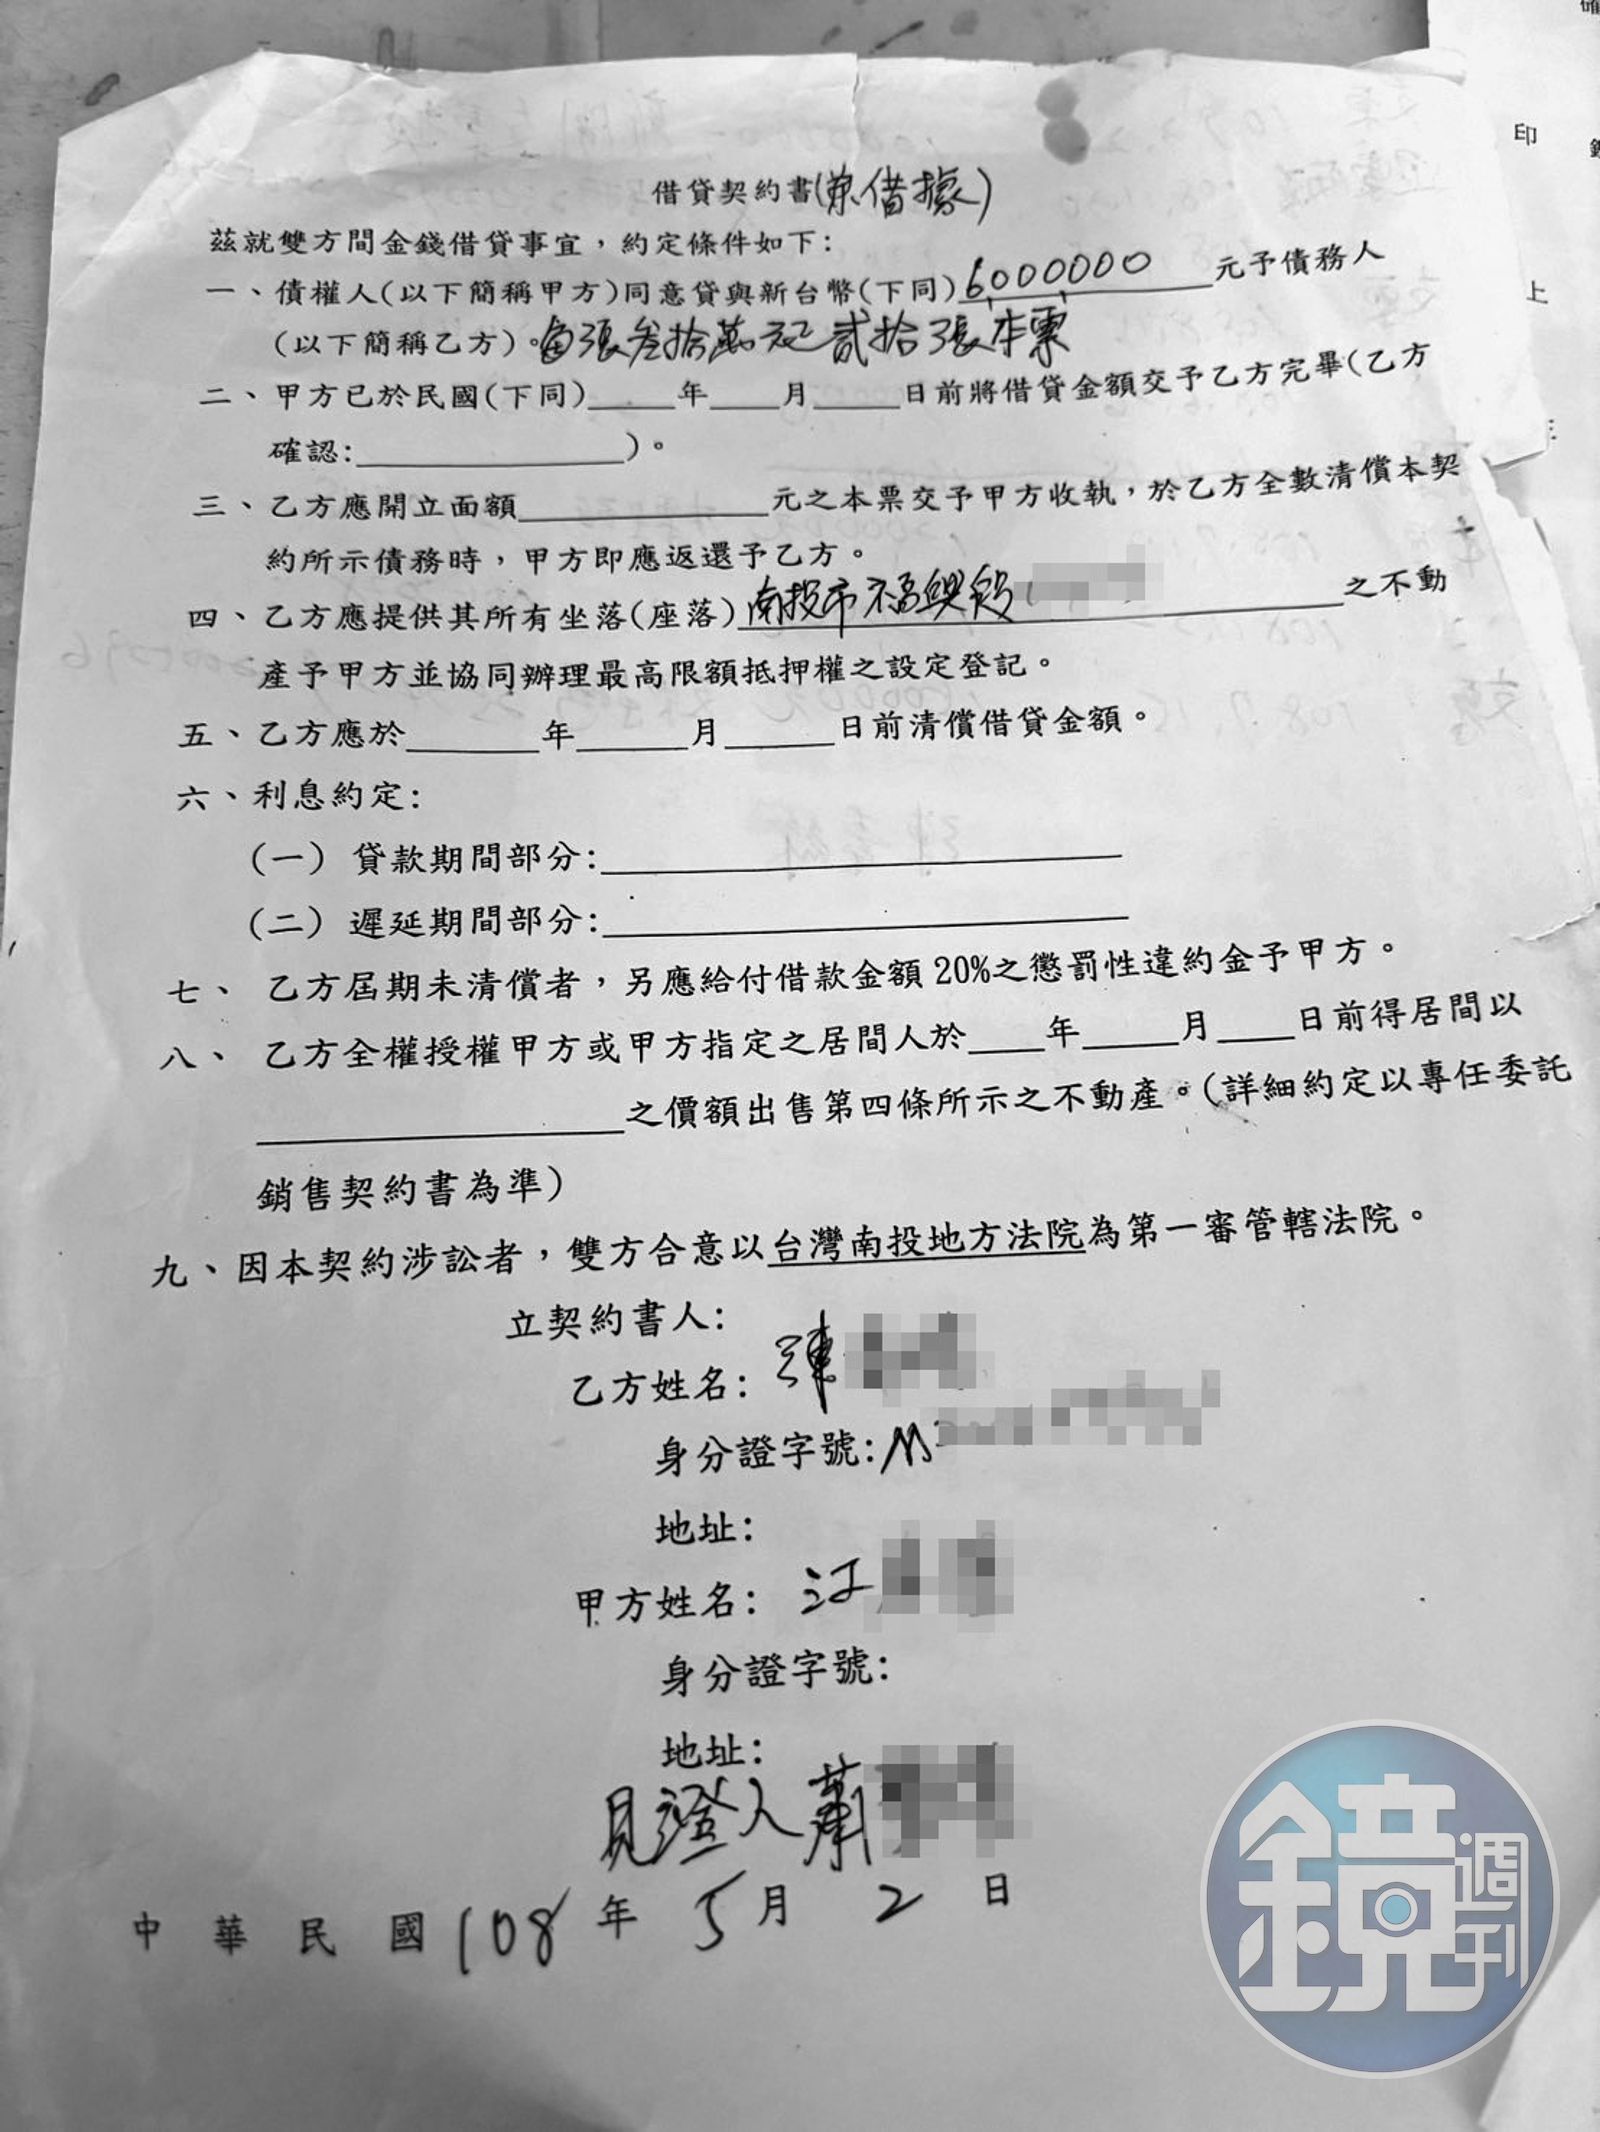 借貸契約書(兼借據)
茲就雙方間金錢借貸事宜，約定條件如下:
一、債權人(以下簡稱甲方)同意貸與新台幣(下同)6000000元予債務人
(以下簡稱乙方)。每張叁拾萬元 貳拾張本票
二、甲方已於民國(下同)_____年____月_____日前將借貸金額交予乙方完畢(乙方
確認:______________)。
三、乙方應開立面額______________元之本票交予甲方收執，於乙方全數清償本契
約所示債務時，甲方即應返還予乙方。
四、乙方應提供其所有坐落(座落)南投市福興段 之不動
產予甲方並協同辦理最高限額抵押權之設定登記。
五、乙方應於_______年______月______日前清償借貸金額。
六、利息約定:
(一) 貸款期間部分:__________________________
(二) 遲延期間部分:__________________________
七、 乙方屆期未清償者，另應給付借款金額 20%之懲罰性違約金予甲方。
八、 乙方全權授權甲方或甲方指定之居間人於____年_____月____日前得居間以
__________________之價額出售第四條所示之不動產。(詳細約定以專任委託
銷售契約書為準)
九、因本契約涉訟者，雙方合意以台灣南投地方法院為第一審管轄法院。
立契約書人:
乙方姓名: 陳
身分證字號: M
地址:
甲方姓名: 江
身分證字號:
地址:
見證人 蕭
中華民國 108 年 5 月 2 日
鏡週刊
印
上